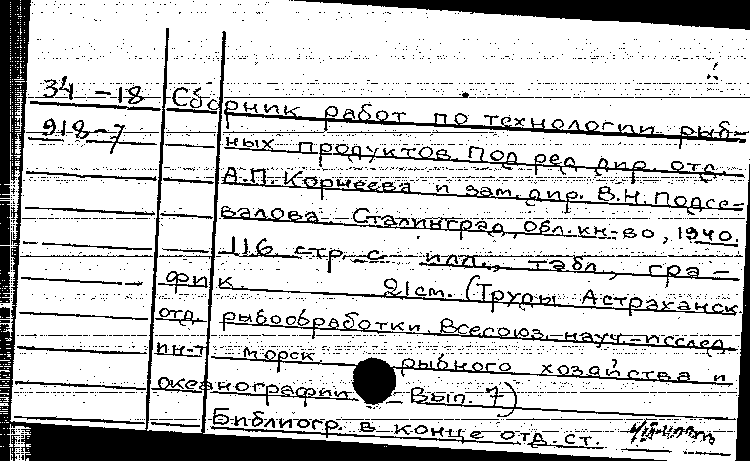 34 -18 Сборник работ по технологии рыб=
918-7 ных продуктов. Под ред. дир. отд.
А.П. Корнеева и зам. дир. В.Н. Подсе=
валова. Сталинград, Обл. кн-во, 1940.
116 стр. с илл., табл., гра-
фик. 21 см. (Труды Астраханск.
отд. рыбообработки Всесоюз. науч.=исслед.
ин-т морск. рыбного хозяйства и
океанографии Вып. 7)
Библиогр. в конце отд. ст.